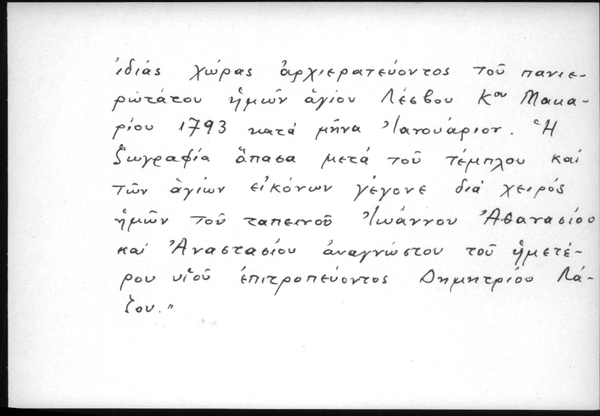 ἰδιάς χώρας ἀρχιερατεύοντος τοῦ πανιε-
ρωτάτου ἡμῶν ἁγίου Λέσβου Κου Μακα-
ρίου 1793 κατά μῆνα Ἰανουάριον. Ἡ
ζωγραφία ἅπασα μετά τοῦ τέμπλου καί
τῶν ἁγίων εἰκόνων γέγονε διά χειρός
ἡμῶν τοῦ ταπεινοῦ Ἰωάννου Ἀθανασίου
καί Ἀναστασίου ἀναγνώστου τοῦ ἡμετέ-
ρου υἱοῦ ἐπιτροπεύοντος Δημητρίου Λά-
ζου."